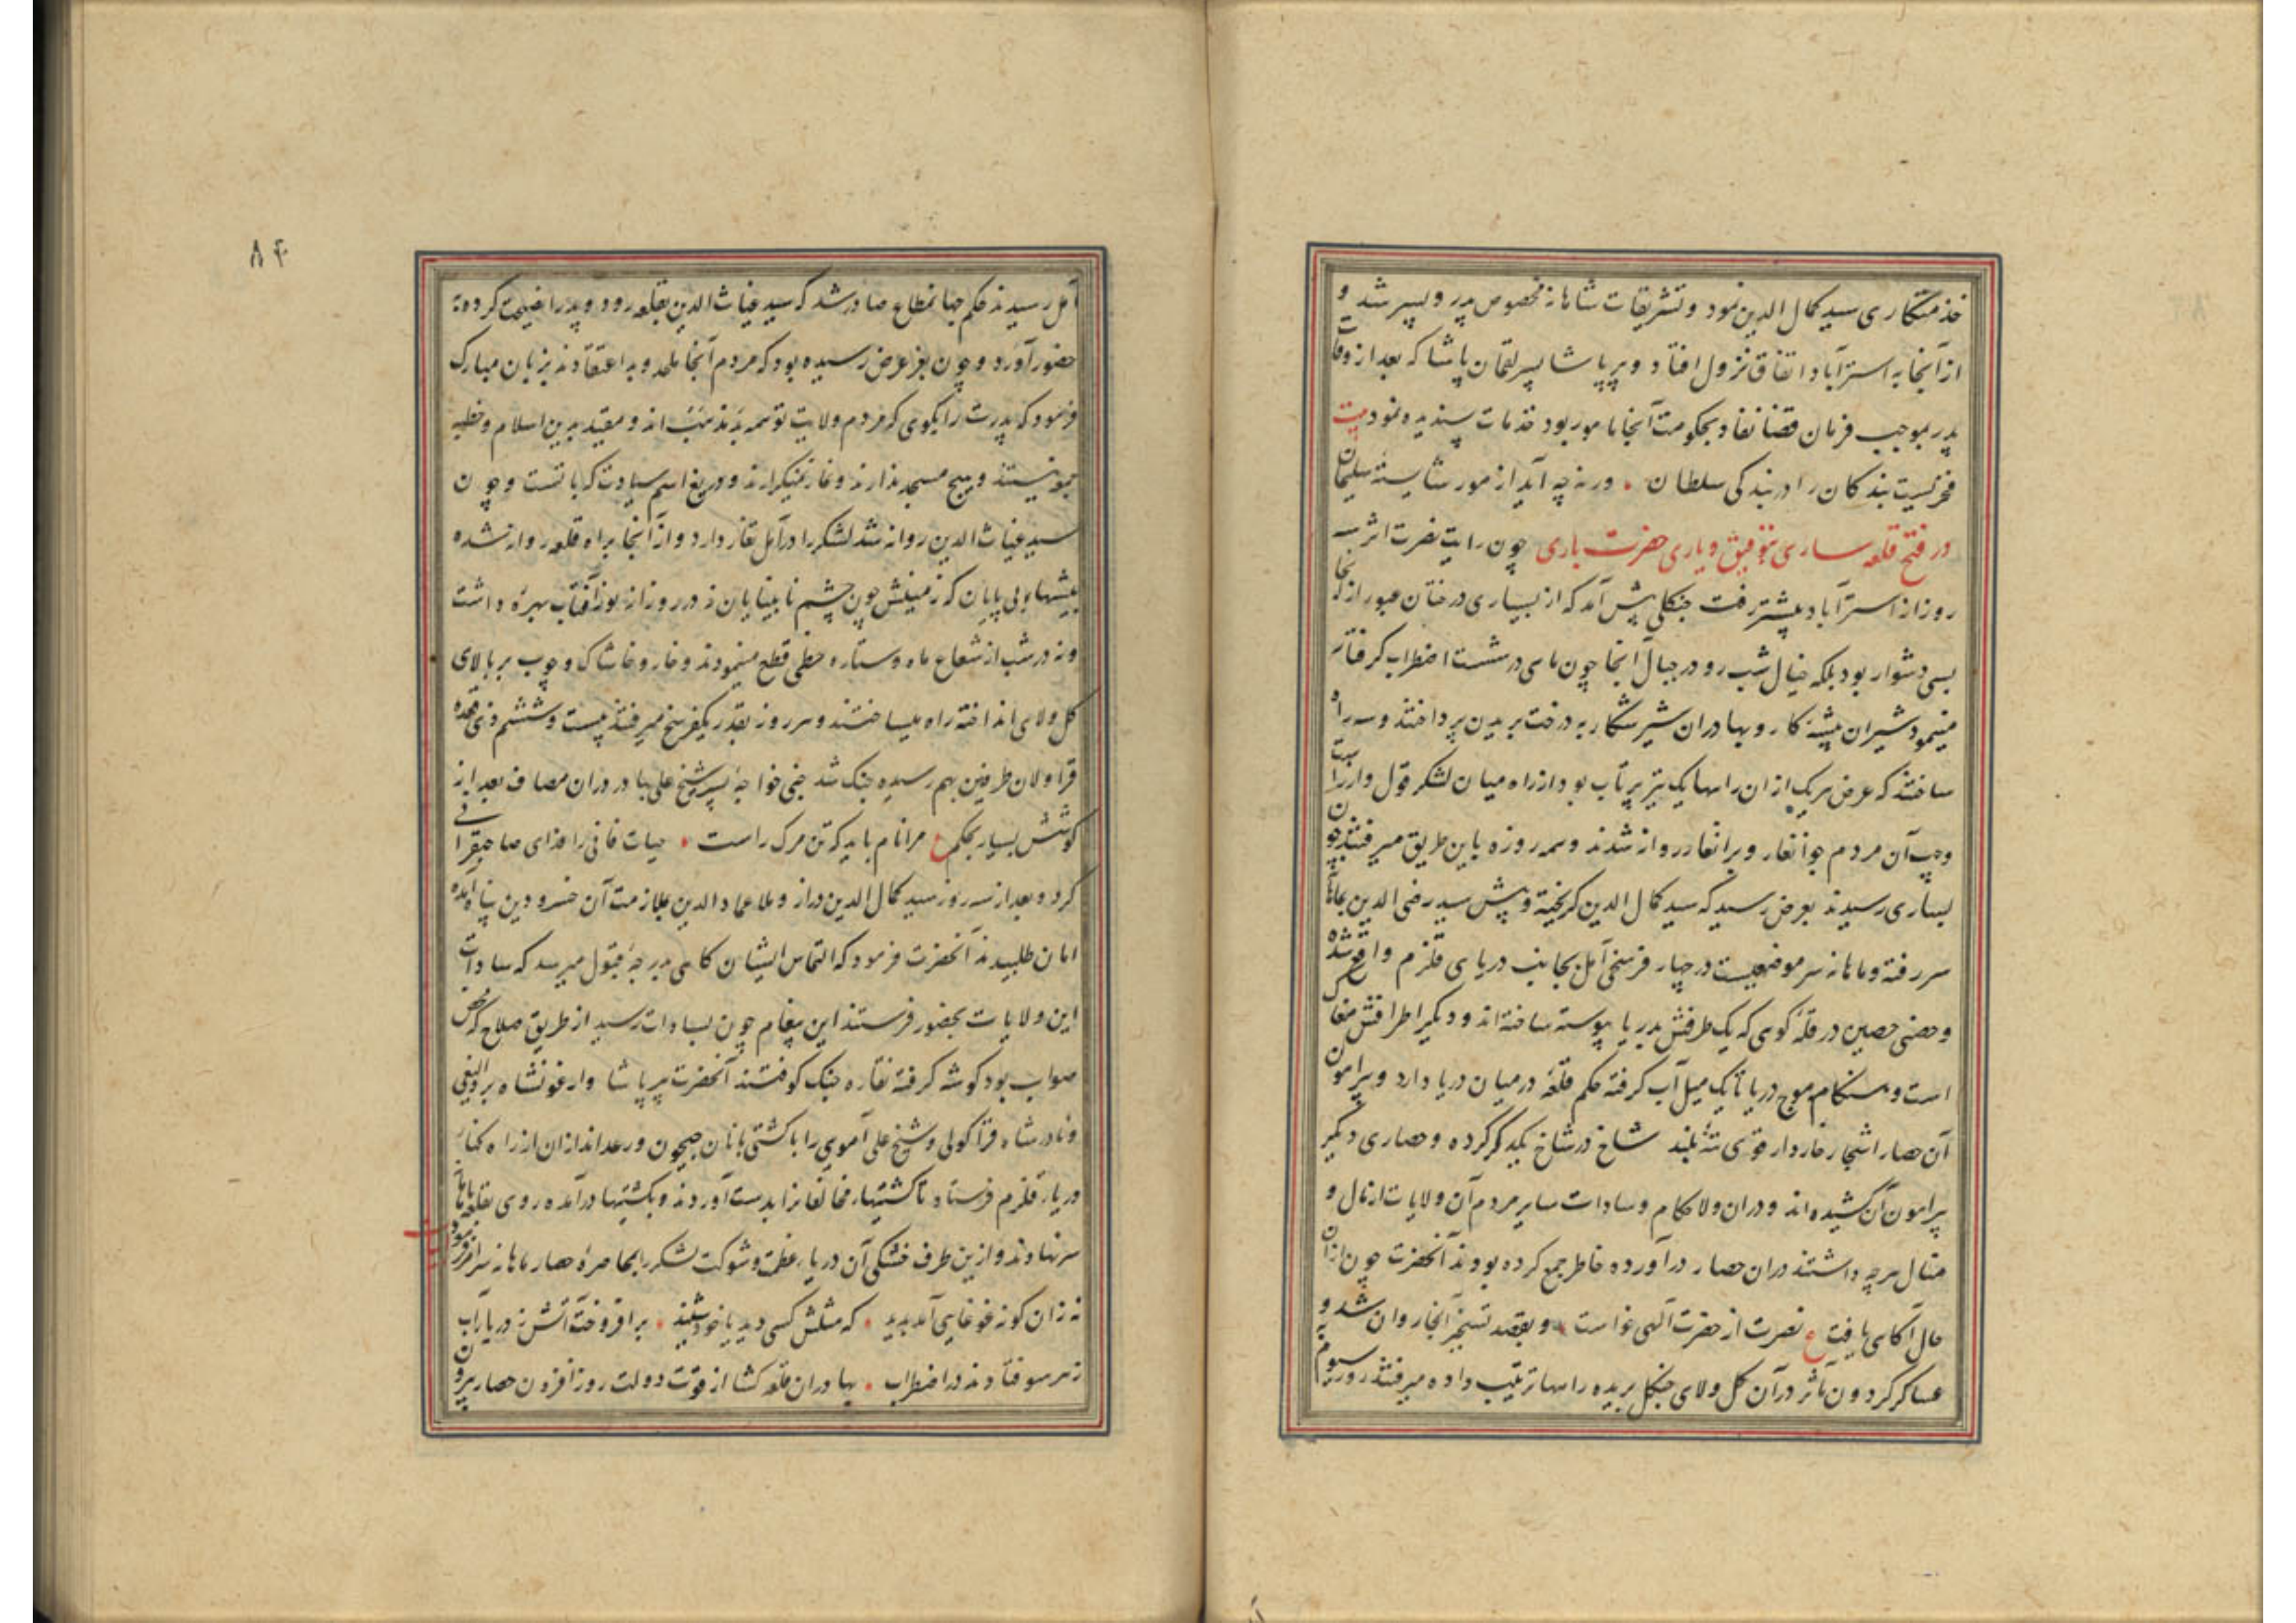 خدمتکاری سید کمال الدین نمود و تشریفات شاهانه مخصوص پدر و پسر شد و
از آنجا به استرآباد اتفاق نزول افتاد و پیرپاشا پسر لقمان پاشا که بعد از وفات
پدر بموجب فرمان قضا نفاد بحکومت آنجا مامور بود خدمات پسندیده نمود بیت
فخریست بندکان را در بندکی سلطان ورنه چه آید از مور شایسته سلیمان
در فتح قلعه ساری بتوفیق و یاری حضرت باری چون رایت نصرت اثر سه
روز از استرآباد پیشتر رفت جنکلی پیش آمد که از بسیاری درختان عبور از آنجا
بسی دشوار بود بلکه خیال شب رو در جبال آنجا چون ماهی در شست اضطراب کرفتار
مینمود شیران بیشه کار و بهادران شیر شکار به درخت بریدن پرداختند و سه راه
ساختند که عرض هریک از ان راهها یک تیر پرتاب بود از راه میان لشکر قول و از راست
و چپ آن مردم جوانغار و برانغار روانه شدند و همه روزه باین طریق میرفتند چون
بساری رسیدند بعرض رسید که سید کمال الدین کریخته و پیش سید رضی الدین بماهانه
سر رفته و ماهانه سر موضعیست در چهار فرسخی آمل بجانب دریای قلزم واقع شده
و حصنی حصین در قله کوهی که یک طرفش بدریا پیوسته ساخته اند و دیکر اطرافش مغاک
است و هنکام موج دریا تا یک میل آب کرفته حکم قلعه در میان دریا دارد و پیرامون
آن حصار اشجار خاردار قوی تنه بلند شاخ در شاخ یکدکر کرده و حصاری دیکر
پیرامون آن کشیده اند و دران ولا حکام و سادات سایر مردم آن ولایات از مال و
منال هرچه داشتند دران حصار درآورده خاطر جمع کرده بودند آنحضرت چون ازان
حال آکاهی یافت ع نصرت از حضرت الهی خواست و بقصد تسخیر آنجا روان شد و
عساکر کردون مآثر در آن کل و لای جنکل بریده راهها ترتیب داده میرفتند روز سیوم به
۸۴
آمل رسیدند حکم جهانمطاع صادر شد که سید غیاث الدین بقلعه رود و پدر را نصیحت کرده به
حضور آورد و چون بعز عرض رسیده بود که مردم آنجا ملحد و بد اعتقادند بزبان مبارک
فرمود که پدرت را بکوی که مردم ولایت تو همه بد مذهب اند و مقید بدین اسلام و خطبه
جمعه نیستند و هیچ مسجد ندارند و نماز نمیکزارند و دریغ اسم سیادت که با تست و چون
سید غیاث الدین روانه شد لشکر را در آمل تغار دارد و از آنجا براه قلعه روانه شده
بیشهای بی پایان که زمینش چون چشم نابینایان نه در روز از نور آفتاب بهره داشت
و نه در شب از شعاع ماه و ستاره حظی قطع مینمودند و خار و خاشاک و چوب بر بالای
کل و لای انداخته راه میساختند و هر روز بقدر یکفرسخ میرفتند بیست و ششم ذی قعده
قراولان طرفین بهم رسیده جنک شد خواجه پسر شیخ علی بهادر دران مصاف بعد از
کوشش بسیار بحکم ع مرا نام باید که تن مرک راست حیات فانی را فدای صاحبقرانی
کرد و بعد از سه روز سید کمال الدین دراز و ملا عماد الدین بملازمت آن خسرو دین پناه آمده
امان طلبیدند آنحضرت فرمود که التماس ایشان کاهی بدرجه قبول میرسد که سادات
این ولایات بحضور فرستند این پیغام چون بسادات رسید از طریق صلاح که محض
صواب بود کوشه کرفته نقاره جنک کوفتند آنحضرت پیرپاشا و ارغونشاه بردالیغی
و نادرشاه قراکولی و شیخ علی آموی را با کشتی بانان جیحون و رعد اندازان از راه کنار
دریای قلزم فرستاد تا کشتیهای مخالفانرا بدست آوردند و بکشتیها درآمده روی بقلعه ماهانه
سر نهادند و ازین طرف خشکی آن دریای عظمت و شوکت لشکر را بمحاصره حصار ماهانه سر امر فرمود
نه زان کونه غوغایی آمد پدید که مثلش کسی دید یا خود شنید برافروخت آتش ز دریا آب
ز هر سو فتادند در اضطراب بهادران قلعه کشا از قوت دولت روز افزون حصار بیرون